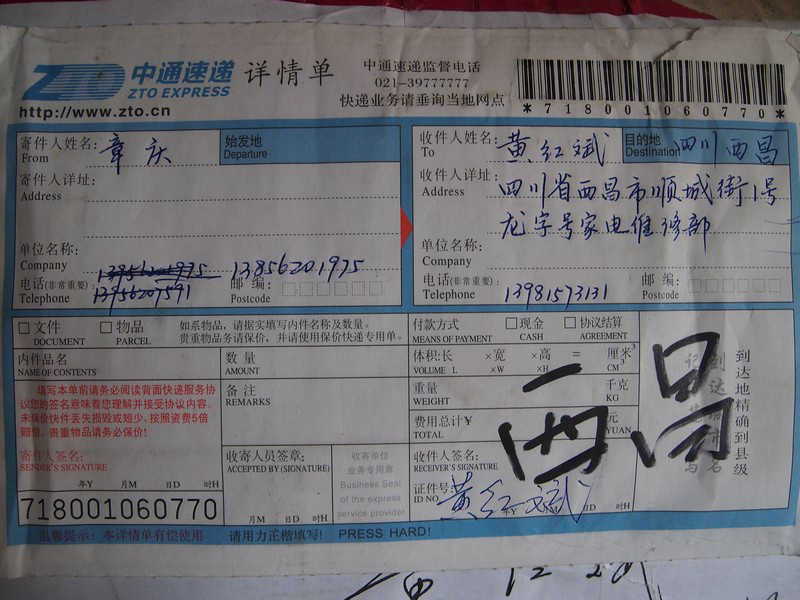 ZTO 中通速递 详情单
ZTO EXPRESS
http://www.zto.cn
中通速递监督电话
021-39777777
快递业务请垂询当地网点
*718001060770*
寄件人姓名:
From
章庆
始发地
Departure
寄件人详址:
Address
单位名称:
Company
13856201975
电话(非常重要):
Telephone
13956207591
邮编:
Postcode
收件人姓名:
To
黄红斌
目的地
Destination
四川西昌
收件人详址:
Address
四川省西昌市顺城街1号
龙字号家电维修部
单位名称:
Company
电话(非常重要):
Telephone
13981573131
邮编:
Postcode
文件
DOCUMENT
物品
PARCEL
如系物品，请据实填写内件名称及数量。
贵重物品务请保价，并请使用保价快递专用单。
付款方式
MEANS OF PAYMENT
现金
CASH
协议结算
AGREEMENT
内件品名
NAME OF CONTENTS
数量
AMOUNT
体积:长 ×宽 ×高 = 厘米³
VOLUME L ×W ×H CM³
填写本单前请务必阅读背面快递服务协
议!您的签名意味着您理解并接受协议内容。
未保价快件丢失损毁或短少，按照资费5倍
赔偿。贵重物品请务必保价!
备注
REMARKS
重量
WEIGHT
千克
KG
费用总计¥
TOTAL
元
YUAN
西昌
到达地精确到县级
寄件人签名:
SENDER'S SIGNATURE
年Y 月M 日D 时H
718001060770
收寄人员签章:
ACCEPTED BY (SIGNATURE)
月M 日D 时H
收寄单位
业务专用章
Business Seal
of the express
service provider
收件人签名:
RECEIVER'S SIGNATURE
证件号:
ID NO
黄红斌
年Y 月M 日D 时H
温馨提示：本详情单有偿使用
请用力正楷填写! PRESS HARD!